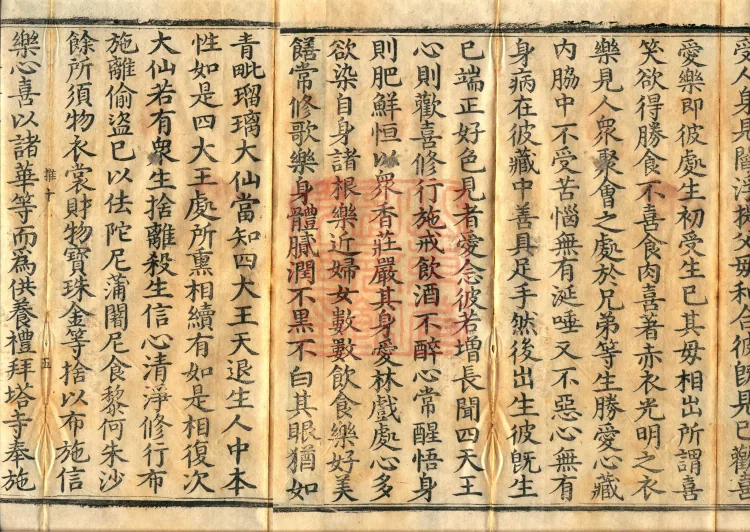 愛樂即彼處生初受生已其母相出所謂喜
笑欲得勝食不喜食肉喜著赤衣光明之衣
樂見人眾聚會之處於兄弟等生勝愛心藏
內脇中不受苦惱無有涎唾又不惡心無有
身病在彼藏中善具足手然後出生彼既生
已端正好色見者愛念彼若增長聞四天王
心則歡喜修行施戒飲酒不醉心常醒悟身
則肥鮮恒以眾香莊嚴其身愛林戲處心多
欲染自身諸根樂近婦女數數飲食樂好美
饍常修歌樂身體膩潤不黑不白其眼猶如
青毗瑠璃大仙當知四大王天退生人中本
性如是四大王處所熏相續有如是相復次
大仙若有眾生捨離殺生信心清淨修行布
施離偷盜已以佉陀尼蒲闍尼食黎何朱沙
餘所須物衣裳財物寶珠金等捨以布施信
樂心喜以諸華等而為供養禮拜塔寺奉施
五